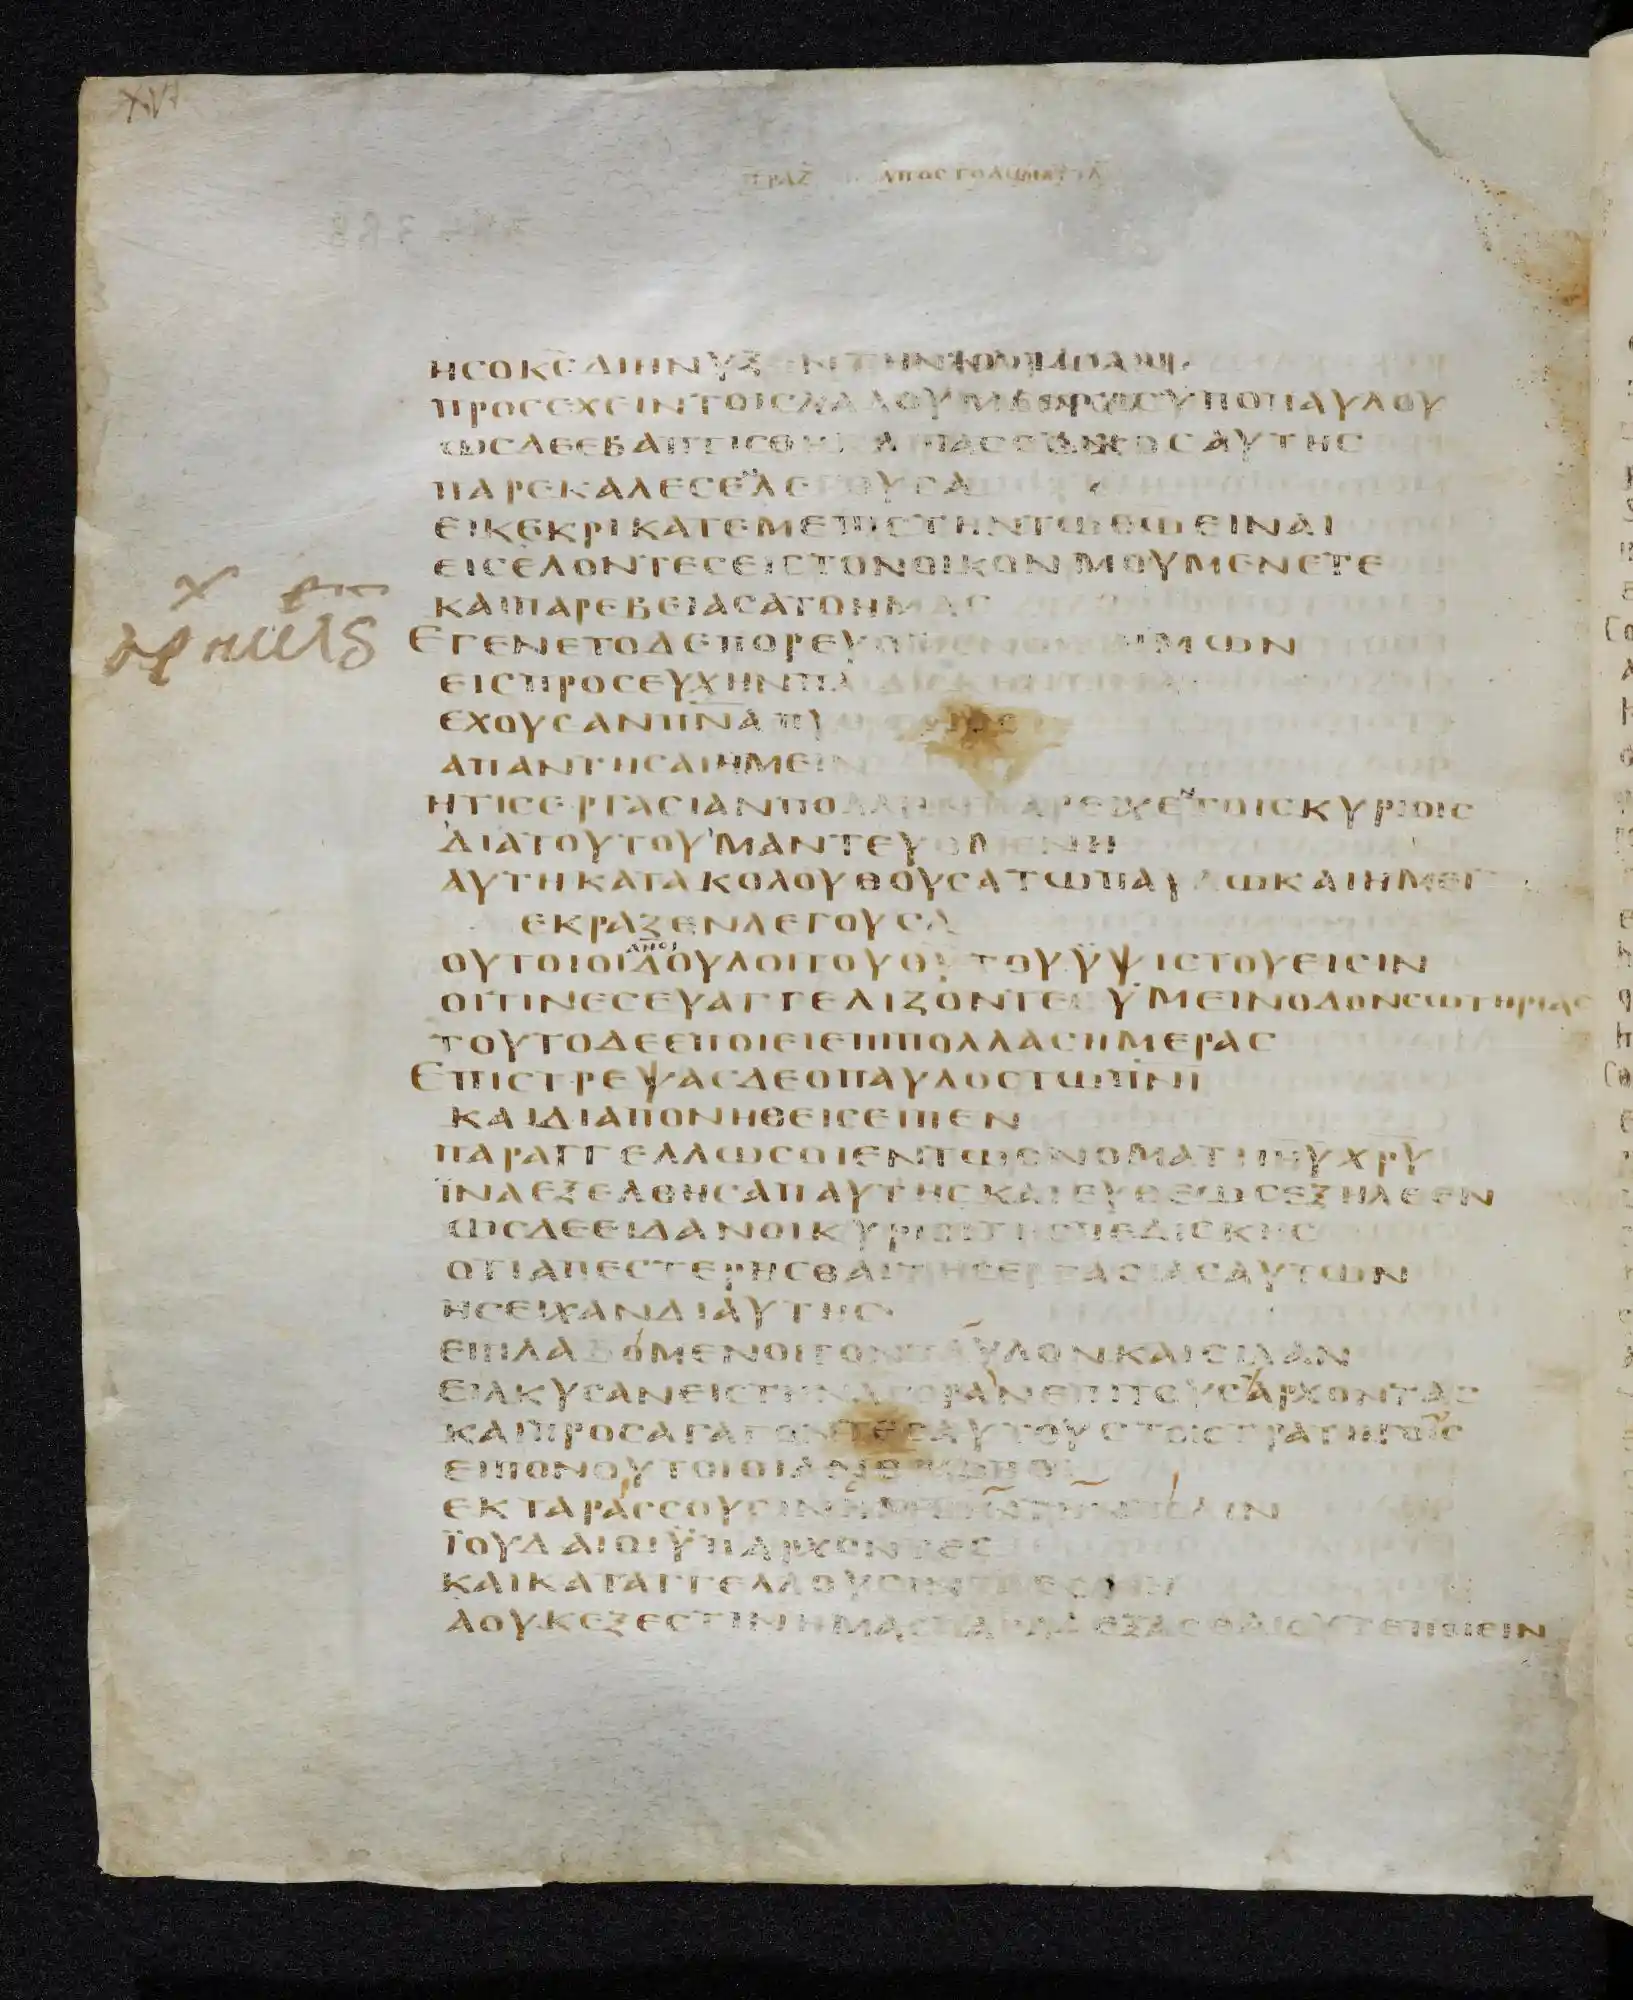 XVI
ΗϹΟΚ̅Ϲ̅ΔΙΗΝΥΞΕΝΤΗΝ
ΠΡΟϹΕΧΕΙΝΤΟΙϹΛΑΛΟΥΜΕΝΟΙϹΥΠΟΠΑΥΛΟΥ
ΩϹΔΕΕΒΑΠΤΙϹΘΗ ΠΑϹΟΟΙΚΟϹΑΥΤΗϹ
ΠΑΡΕΚΑΛΕϹΕΛΕΓΟΥϹΑ
ΕΙΚΕΚΡΙΚΑΤΕΜΕΠΙϹΤΗΝΤΩΘ̅Ω̅ΕΙΝΑΙ
ΕΙϹΕΛΟΝΤΕϹΕΙϹΤΟΝΟΙΚΟΝΜΟΥΜΕΝΕΤΕ
ΚΑΙΠΑΡΕΒΕΙΑϹΑΤΟΗΜΑϹ
ΕΓΕΝΕΤΟΔΕΠΟΡΕΥΟΜΕΝΩΝΗΜΩΝ
ΕΙϹΠΡΟϹΕΥΧΗΝΠΑΙΔΙϹΚΗΝΤΙΝΑ
ΕΧΟΥϹΑΝΠ̅Ν̅Α̅ΠΥΘΩΝΟϹ
ΑΠΑΝΤΗϹΑΙΗΜΕΙΝ
ΗΤΙϹΕΡΓΑϹΙΑΝΠΟΛΛΗΝΠΑΡΕΙΧΕΝΤΟΙϹΚΥΡΙΟΙϹ
ΔΙΑΤΟΥΤΟΥΜΑΝΤΕΥΟΜΕΝΗ
ΑΥΤΗΚΑΤΑΚΟΛΟΥΘΟΥϹΑΤΩΠΑΥΛΩΚΑΙΗΜΕΙΝ
ΕΚΡΑΖΕΝΛΕΓΟΥϹΑ
ΟΥΤΟΙΟΙΔΟΥΛΟΙΤΟΥΘ̅Υ̅ΤΟΥΫΨΙϹΤΟΥΕΙϹΙΝ
ΟΙΤΙΝΕϹΕΥΑΓΓΕΛΙΖΟΝΤΕϹΫΜΕΙΝΟΔΟΝϹΩΤΗΡΙΑϹ
ΤΟΥΤΟΔΕΕΠΟΙΕΙΕΠΙΠΟΛΛΑϹΗΜΕΡΑϹ
ΕΠΙϹΤΡΕΨΑϹΔΕΟΠΑΥΛΟϹΤΩΠ̅Ν̅Ι̅
ΚΑΙΔΙΑΠΟΝΗΘΕΙϹΕΙΠΕΝ
ΠΑΡΑΓΓΕΛΛΩϹΟΙΕΝΤΩΟΝΟΜΑΤΙΙ̅Η̅Υ̅Χ̅Ρ̅Υ̅
ΪΝΑΕΞΕΛΘΗϹΑΠΑΥΤΗϹΚΑΙΕΥΘΕΩϹΕΞΗΛΘΕΝ
ΩϹΔΕΕΙΔΑΝΟΙΚΥΡΙΟΙΤΗϹΠΕΔΙϹΚΗϹ
ΟΤΙΑΠΕϹΤΕΡΗϹΘΑΙΤΗϹΕΡΓΑϹΙΑϹΑΥΤΩΝ
ΗϹΕΙΧΑΝΔΙΑΥΤΗϹ
ΕΠΙΛΑΒΟΜΕΝΟΙΤΟΝΠΑΥΛΟΝΚΑΙϹΙΛΑΝ
ΕΙΛΚΥϹΑΝΕΙϹΤΗΝΑΓΟΡΑΝΕΠΙΤΟΥϹΑΡΧΟΝΤΑϹ
ΚΑΙΠΡΟϹΑΓΑΓΟΝΤΕϹΑΥΤΟΥϹΤΟΙϹΤΡΑΤΗΓΟΙϹ
ΕΙΠΟΝΟΥΤΟΙΟΙΑΝΘΡΩΠΟΙ
ΕΚΤΑΡΑϹϹΟΥϹΙΝΗΜΩΝΤΗΝΠΟΛΙΝ
ΪΟΥΔΑΙΟΙΫΠΑΡΧΟΝΤΕϹ
ΚΑΙΚΑΤΑΓΓΕΛΛΟΥϹΙΝ
ΑΟΥΚΕΞΕϹΤΙΝΗΜΑϹΠΑΡΑΔΕΞΑϹΘΑΙΟΥΤΕΠΟΙΕΙΝ